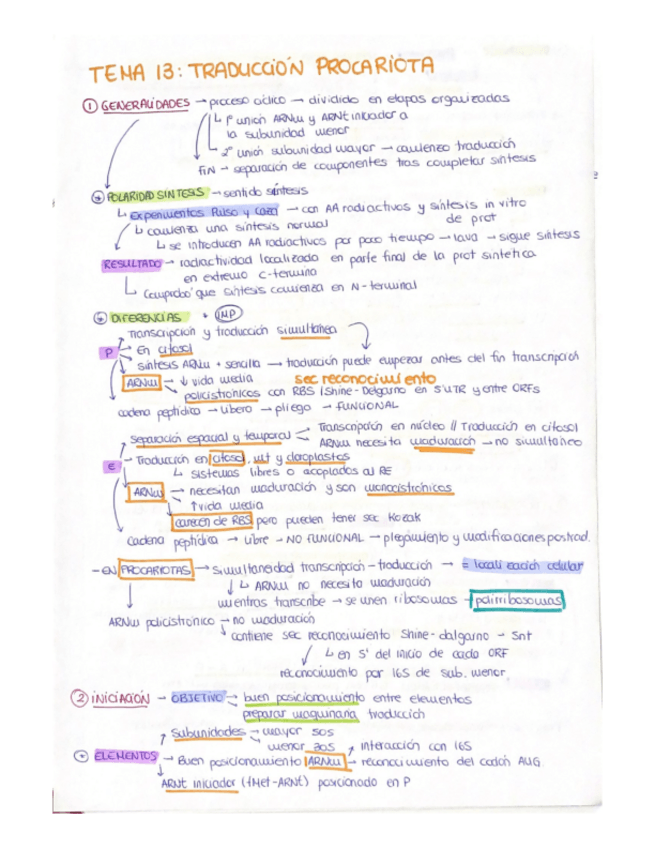 TEMA 13: TRADUCCIÓN PROCARIOTA
① GENERALIDADES → proceso cíclico → dividido en etapas organizadas
↳ 1º unión ARNm y ARNt iniciador a
la subunidad menor
↳ 2º unión subunidad mayor → comienzo traducción
FIN → separación de componentes tras completar síntesis
POLARIDAD SINTESIS → sentido síntesis
↳ Experimentos Pulso y Caza → con AA radiactivos y síntesis in vitro
de prot
↳ comienza una síntesis normal
↳ se introducen AA radiactivos por poco tiempo → lava → sigue síntesis
RESULTADO → radiactividad localizada en parte final de la prot sintética
en extremo C-termino
↳ Comprobó que síntesis comienza en N-terminal
DIFERENCIAS IMP
Transcripción y traducción simultánea
P → En citosol
síntesis ARNm + sencilla → traducción puede empezar antes del fin transcripción
ARNm → ↓ vida media sec reconocimiento
policistrónicos con RBS (Shine-Delgarno en 5'UTR y entre ORFs
cadena peptídica → libero → pliego → FUNCIONAL
Separación espacial y temporal Transcripción en núcleo // Traducción en citosol
ARNm necesita maduración → no simultáneo
E → Traducción en citosol, mt y cloroplastos
↳ sistemas libres o acoplados al RE
ARNm → necesitan maduración y son monocistrónicos
↑ vida media
carecen de RBS pero pueden tener sec Kozak
Cadena peptídica → libre → NO FUNCIONAL → plegamiento y modificaciones postrad.
- EN PROCARIOTAS → simultaneidad transcripción-traducción → = localización celular
↓ ↳ ARNm no necesita maduración
mientras transcribe → se unen ribosomas → polirribosomas
ARNm policistrónico → no maduración
contiene sec reconocimiento Shine-dalgarno → 5nt
↳ en 5' del inicio de cada ORF
reconocimiento por 16S de sub. menor
② INICIACIÓN → OBJETIVO → buen posicionamiento entre elementos
preparar maquinaria traducción
Subunidades → mayor 50S
menor 30S interacción con 16S
ELEMENTOS → Buen posicionamiento ARNm → reconocimiento del codón AUG.
ARNt iniciador (fMet-ARNt) posicionado en P